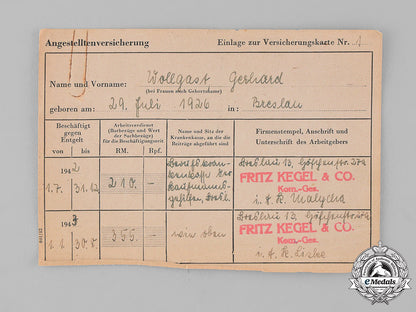 Angestelltenversicherung Einlage zur Versicherungskarte Nr. 1
Name und Vorname: Wollgast Gerhard
(bei Frauen auch Geburtsname)
geboren am: 29. Juli 1926 in: Breslau
Beschäftigt gegen Entgelt
von bis
Arbeitsverdienst (Barbezüge und Wert der Sachbezüge) für die Beschäftigungszeit
RM. Rpf.
Name und Sitz der Krankenkasse, an die die Beiträge abgeführt sind:
Firmenstempel, Anschrift und Unterschrift des Arbeitgebers
1942
1.7. 31.12. 210.-
Breslau 13,
FRITZ KEGEL & CO.
Kom.-Ges.
i. A.
1943
1.1 355.- wie oben
Breslau 13,
FRITZ KEGEL & CO.
Kom.-Ges.
i. A.